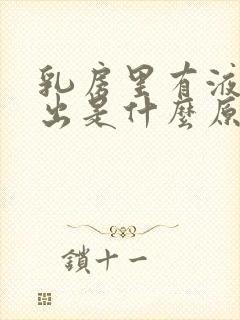 乳房里有液
出是什麼原
鎖十一